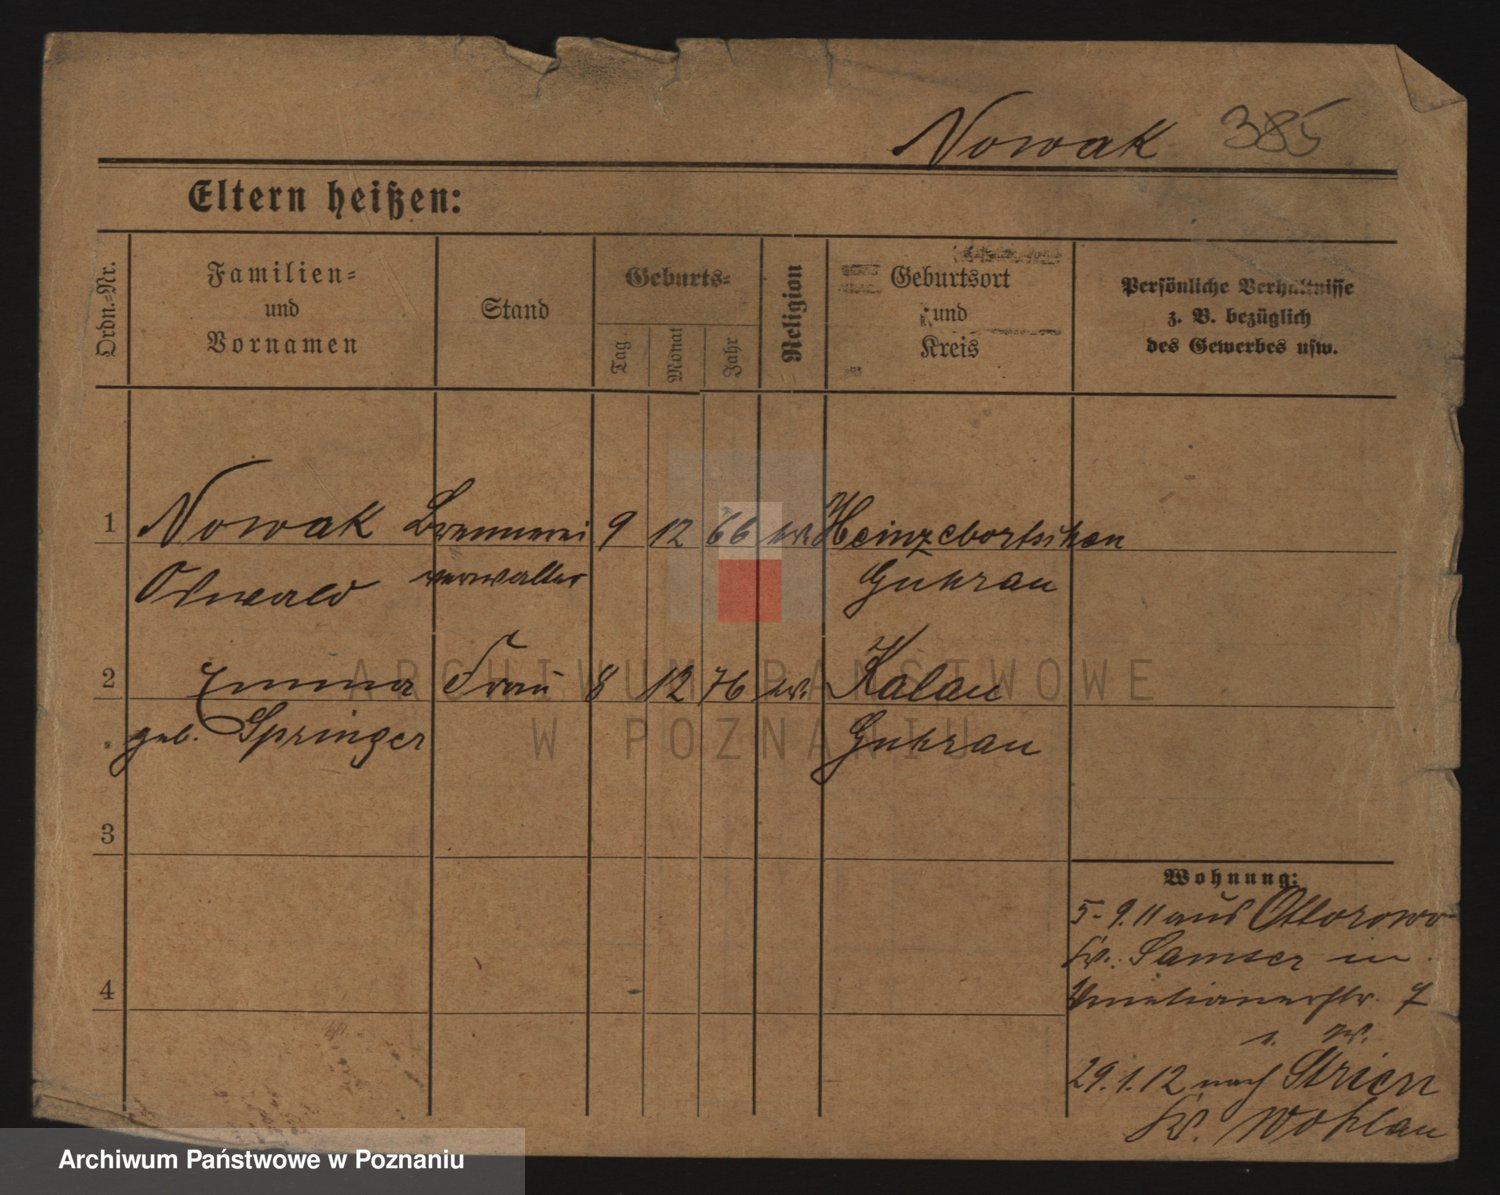 Nowak 385
Eltern heißen:
Ordn.-Nr.
Familien-
und
Vornamen
Stand
Geburts-
Tag
Monat
Jahr
Religion
Geburtsort
und
Kreis
Persönliche Verhältnisse
z. B. bezüglich
des Gewerbes usw.
1 Nowak Brennerei 9 12 66 ev. Heinzebortschen
Oswald verwalter Guhrau
2 Emma Frau 8 12 76 ev. Kalau
geb. Springer Guhrau
3
4
Wohnung:
5.9.11 aus Ottorowo
Kr. Samter in
Venetianerstr. 7
29.1.12 nach Strien
Kr. Wohlau
ARCHIWUM PAŃSTWOWE
W POZNANIU
Archiwum Państwowe w Poznaniu